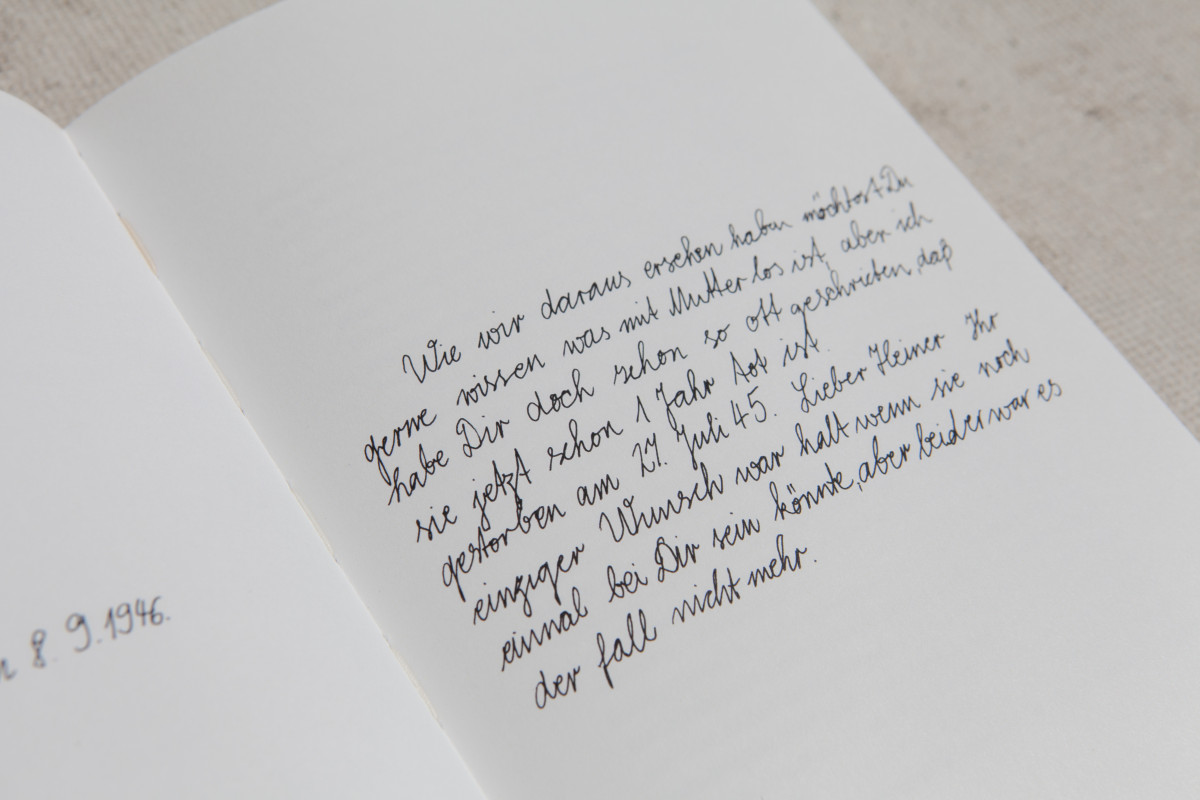 8. 9. 1946.
Wie wir daraus ersehen haben möchtest Du
gerne wissen was mit Mutter los ist, aber ich
habe Dir doch schon so oft geschrieben, daß
sie jetzt schon 1 Jahr tot ist.
gestorben am 27. Juli 45. Lieber Heiner Ihr
einziger Wunsch war halt wenn sie noch
einmal bei Dir sein könnte, aber beider war es
der fall nicht mehr.